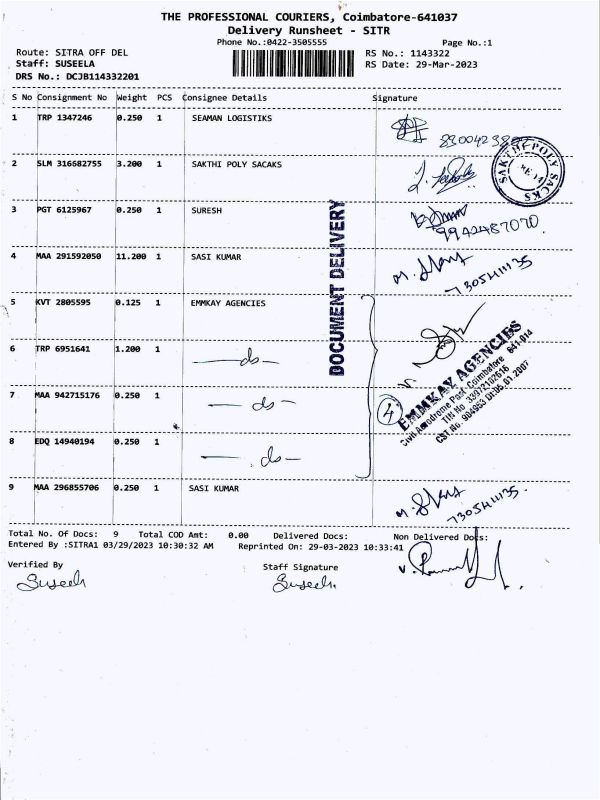 THE PROFESSIONAL COURIERS, Coimbatore-641037
Delivery Runsheet - SITR
Phone No.:0422-3505555
Page No.:1
Route: SITRA OFF DEL
RS No.: 1143322
Staff: SUSEELA
RS Date: 29-Mar-2023
DRS No.: DCJB114332201
S No Consignment No Weight PCS Consignee Details Signature
1 TRP 1347246 0.250 1 SEAMAN LOGISTIKS
2 SLM 316682755 3.200 1 SAKTHI POLY SACAKS
SAKTHI POLY SACKS
3 PGT 6125967 0.250 1 SURESH
9942487070
DOCUMENT DELIVERY
4 MAA 291592050 11.200 1 SASI KUMAR
7305411135
5 KVT 2805595 0.125 1 EMMKAY AGENCIES
6 TRP 6951641 1.200 1 -do-
7 MAA 942715176 0.250 1 -do-
8 EDQ 14940194 0.250 1 -do-
4
EMMKAY AGENCIES
Civil Aerodrome Post, Coimbatore 641-014
TIN No. 33972102616
CST No. 904953 Dt:05.01.2007
9 MAA 296855706 0.250 1 SASI KUMAR
7305411135
Total No. Of Docs: 9 Total COD Amt: 0.00 Delivered Docs: Non Delivered Docs:
Entered By :SITRA1 03/29/2023 10:30:32 AM Reprinted On: 29-03-2023 10:33:41
Verified By
Staff Signature
Suseela
Suseela